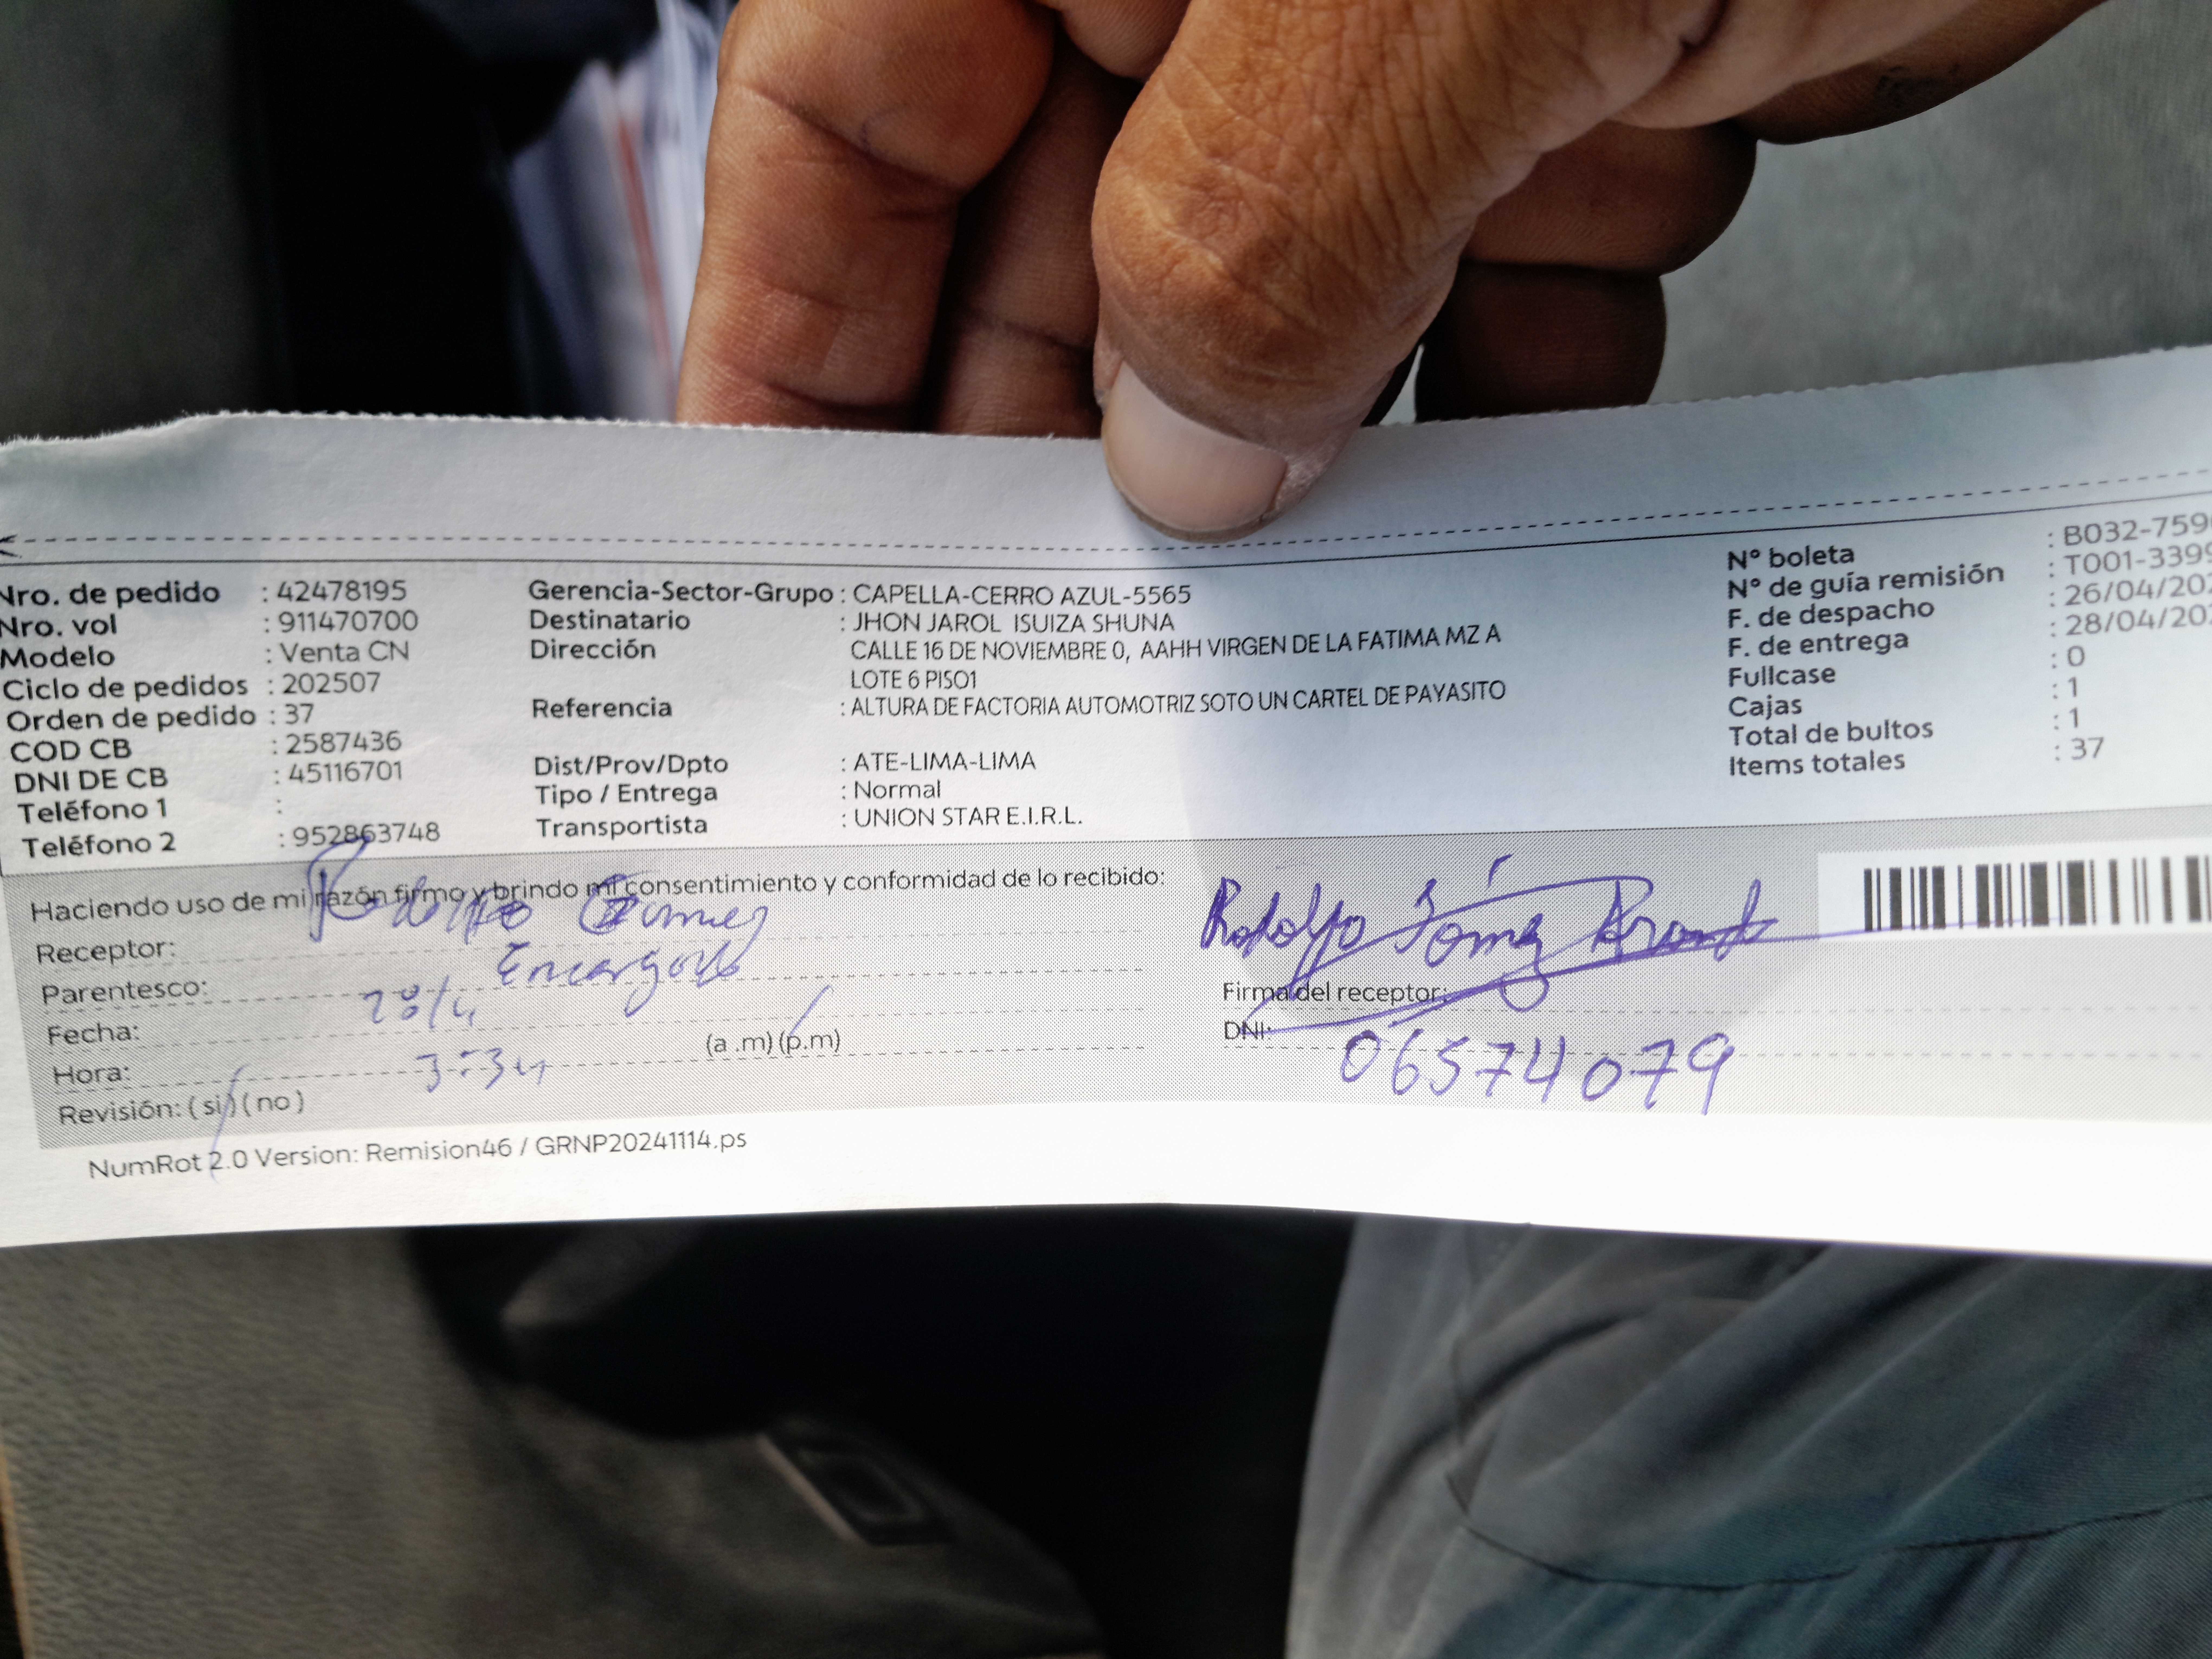 Nro. de pedido : 42478195
Nro. vol : 911470700
Modelo : Venta CN
Ciclo de pedidos : 202507
Orden de pedido : 37
COD CB : 2587436
DNI DE CB : 45116701
Teléfono 1 :
Teléfono 2 : 952863748
Gerencia-Sector-Grupo : CAPELLA-CERRO AZUL-5565
Destinatario : JHON JAROL ISUIZA SHUNA
Dirección CALLE 16 DE NOVIEMBRE 0, AAHH VIRGEN DE LA FATIMA MZ A
LOTE 6 PISO1
Referencia : ALTURA DE FACTORIA AUTOMOTRIZ SOTO UN CARTEL DE PAYASITO
Dist/Prov/Dpto : ATE-LIMA-LIMA
Tipo / Entrega : Normal
Transportista : UNION STAR E.I.R.L.
N° boleta : B032-759
N° de guía remisión : T001-339
F. de despacho : 26/04/20
F. de entrega : 28/04/20
Fullcase : 0
Cajas : 1
Total de bultos : 1
Items totales : 37
Haciendo uso de mi razón firmo y brindo mi consentimiento y conformidad de lo recibido:
Receptor: Rodolfo Gomez
Parentesco: Encargado
Fecha: 28/4
Hora: 3:34 (a .m) (p.m)
Revisión: ( si ) ( no )
Rodolfo Gómez
Firma del receptor:
DNI: 06574079
NumRot 2.0 Version: Remision46 / GRNP20241114.ps